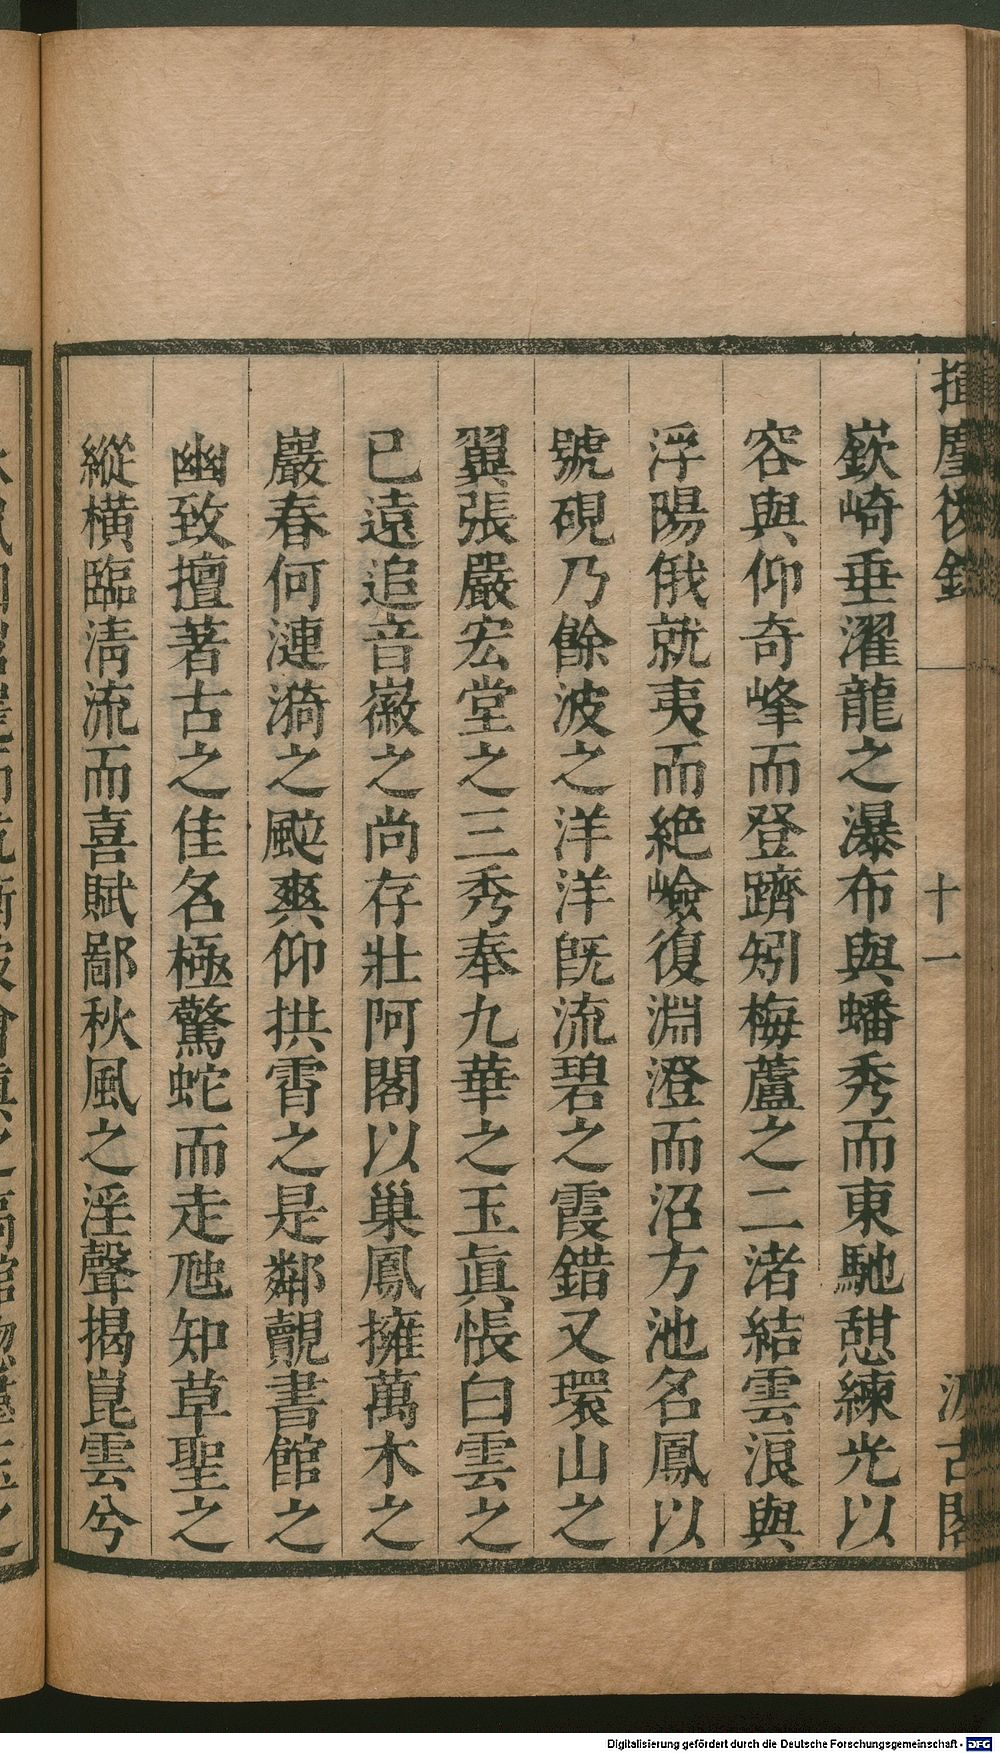 揮麈後錄
十一
汲古閣
嶔崎垂濯龍之瀑布與蟠秀而東馳憇練光以
容與仰奇峰而登躋矧梅蘆之二渚結雲浪與
浮陽俄就夷而絶嶮復淵澄而沼方池名鳳以
號硯乃餘波之洋洋旣流碧之霞錯又環山之
翼張嚴宏堂之三秀奉九華之玉眞悵白雲之
已遠追音徽之尚存壯阿閣以巢鳳擁萬木之
巖春何漣漪之颭爽仰拱霄之是鄰覿書館之
幽致擅著古之佳名極驚蛇而走虺知草聖之
縱橫臨淸流而喜賦鄙秋風之淫聲揭崑雲兮
Digitalisierung gefördert durch die Deutsche Forschungsgemeinschaft - DFG